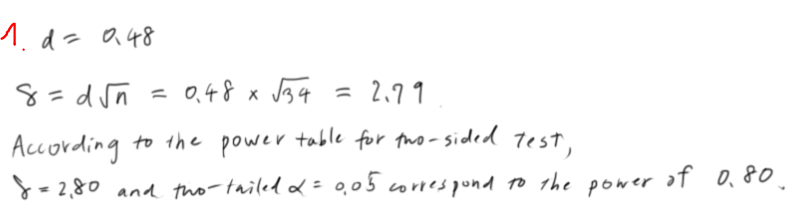 1. d = 0.48
δ = d√n = 0.48 x √34 = 2.79
According to the power table for two-sided test,
δ = 2.80 and two-tailed α = 0.05 correspond to the power of 0.80.